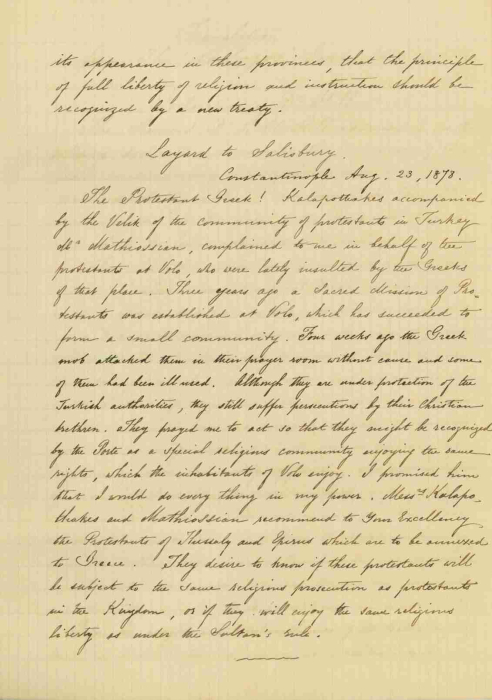 its appearance in these provinces, that the principle
of full liberty of religion and instruction should be
recognized by a new treaty.
Layard to Salisbury.
Constantinople Aug. 23, 1878.
The Protestant Greek! Kalapothakes accompanied
by the Vekil of the community of protestants in Turkey
Mr Mathiossian, complained to me in behalf of the
protestants at Volo, who were lately insulted by the Greeks
of that place. Three years ago a Sacred Mission of Pro-
testants was established at Volo, which has succeeded to
form a small community. Four weeks ago the Greek
mob attacked them in their prayer room without cause and some
of them had been ill used. Although they are under protection of the
Turkish authorities, they still suffer persecutions by their Christian
brethren. They prayed me to act so that they might be recognized
by the Porte as a special religious community enjoying the same
rights, which the inhabitants of Volo enjoy. I promised him
that I would do every thing in my power. Messrs Kalapo-
thakes and Mathiossian recommend to Your Excellency
the Protestants of Thessaly and Epirus which are to be annexed
to Greece. They desire to know if these protestants will
be subject to the same religious prosecution as protestants
in the Kingdom, or if they will enjoy the same religious
liberty as under the Sultan's rule.